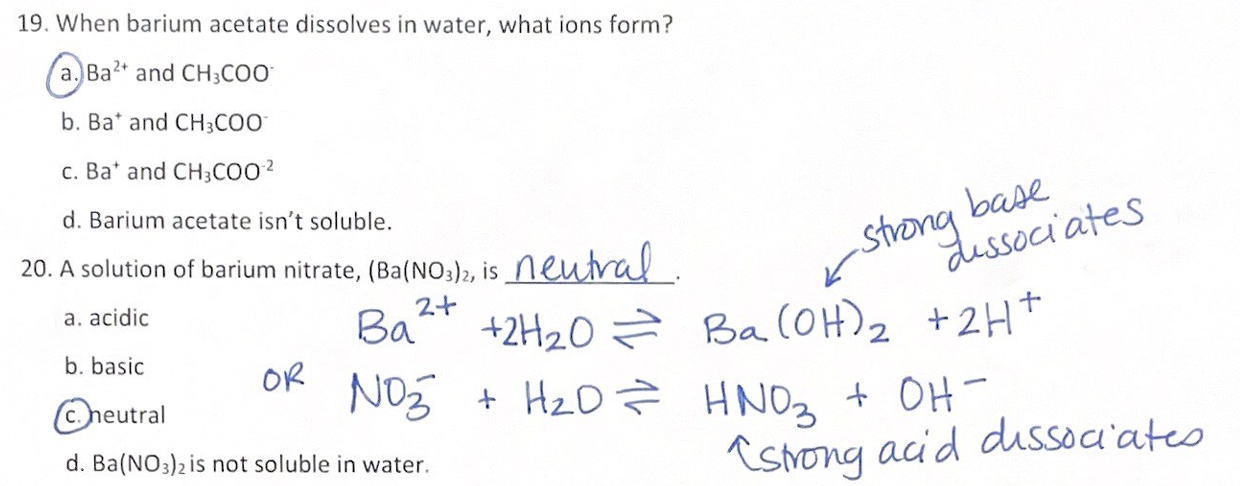 19. When barium acetate dissolves in water, what ions form?
a. Ba²⁺ and CH₃COO⁻
b. Ba⁺ and CH₃COO⁻
c. Ba⁺ and CH₃COO⁻²
d. Barium acetate isn't soluble.
strong base
dissociates
20. A solution of barium nitrate, (Ba(NO₃)₂, is neutral.
a. acidic
Ba²⁺ + 2H₂O ⇌ Ba(OH)₂ + 2H⁺
b. basic
OR NO₃⁻ + H₂O ⇌ HNO₃ + OH⁻
c. neutral
↑strong acid dissociates
d. Ba(NO₃)₂ is not soluble in water.